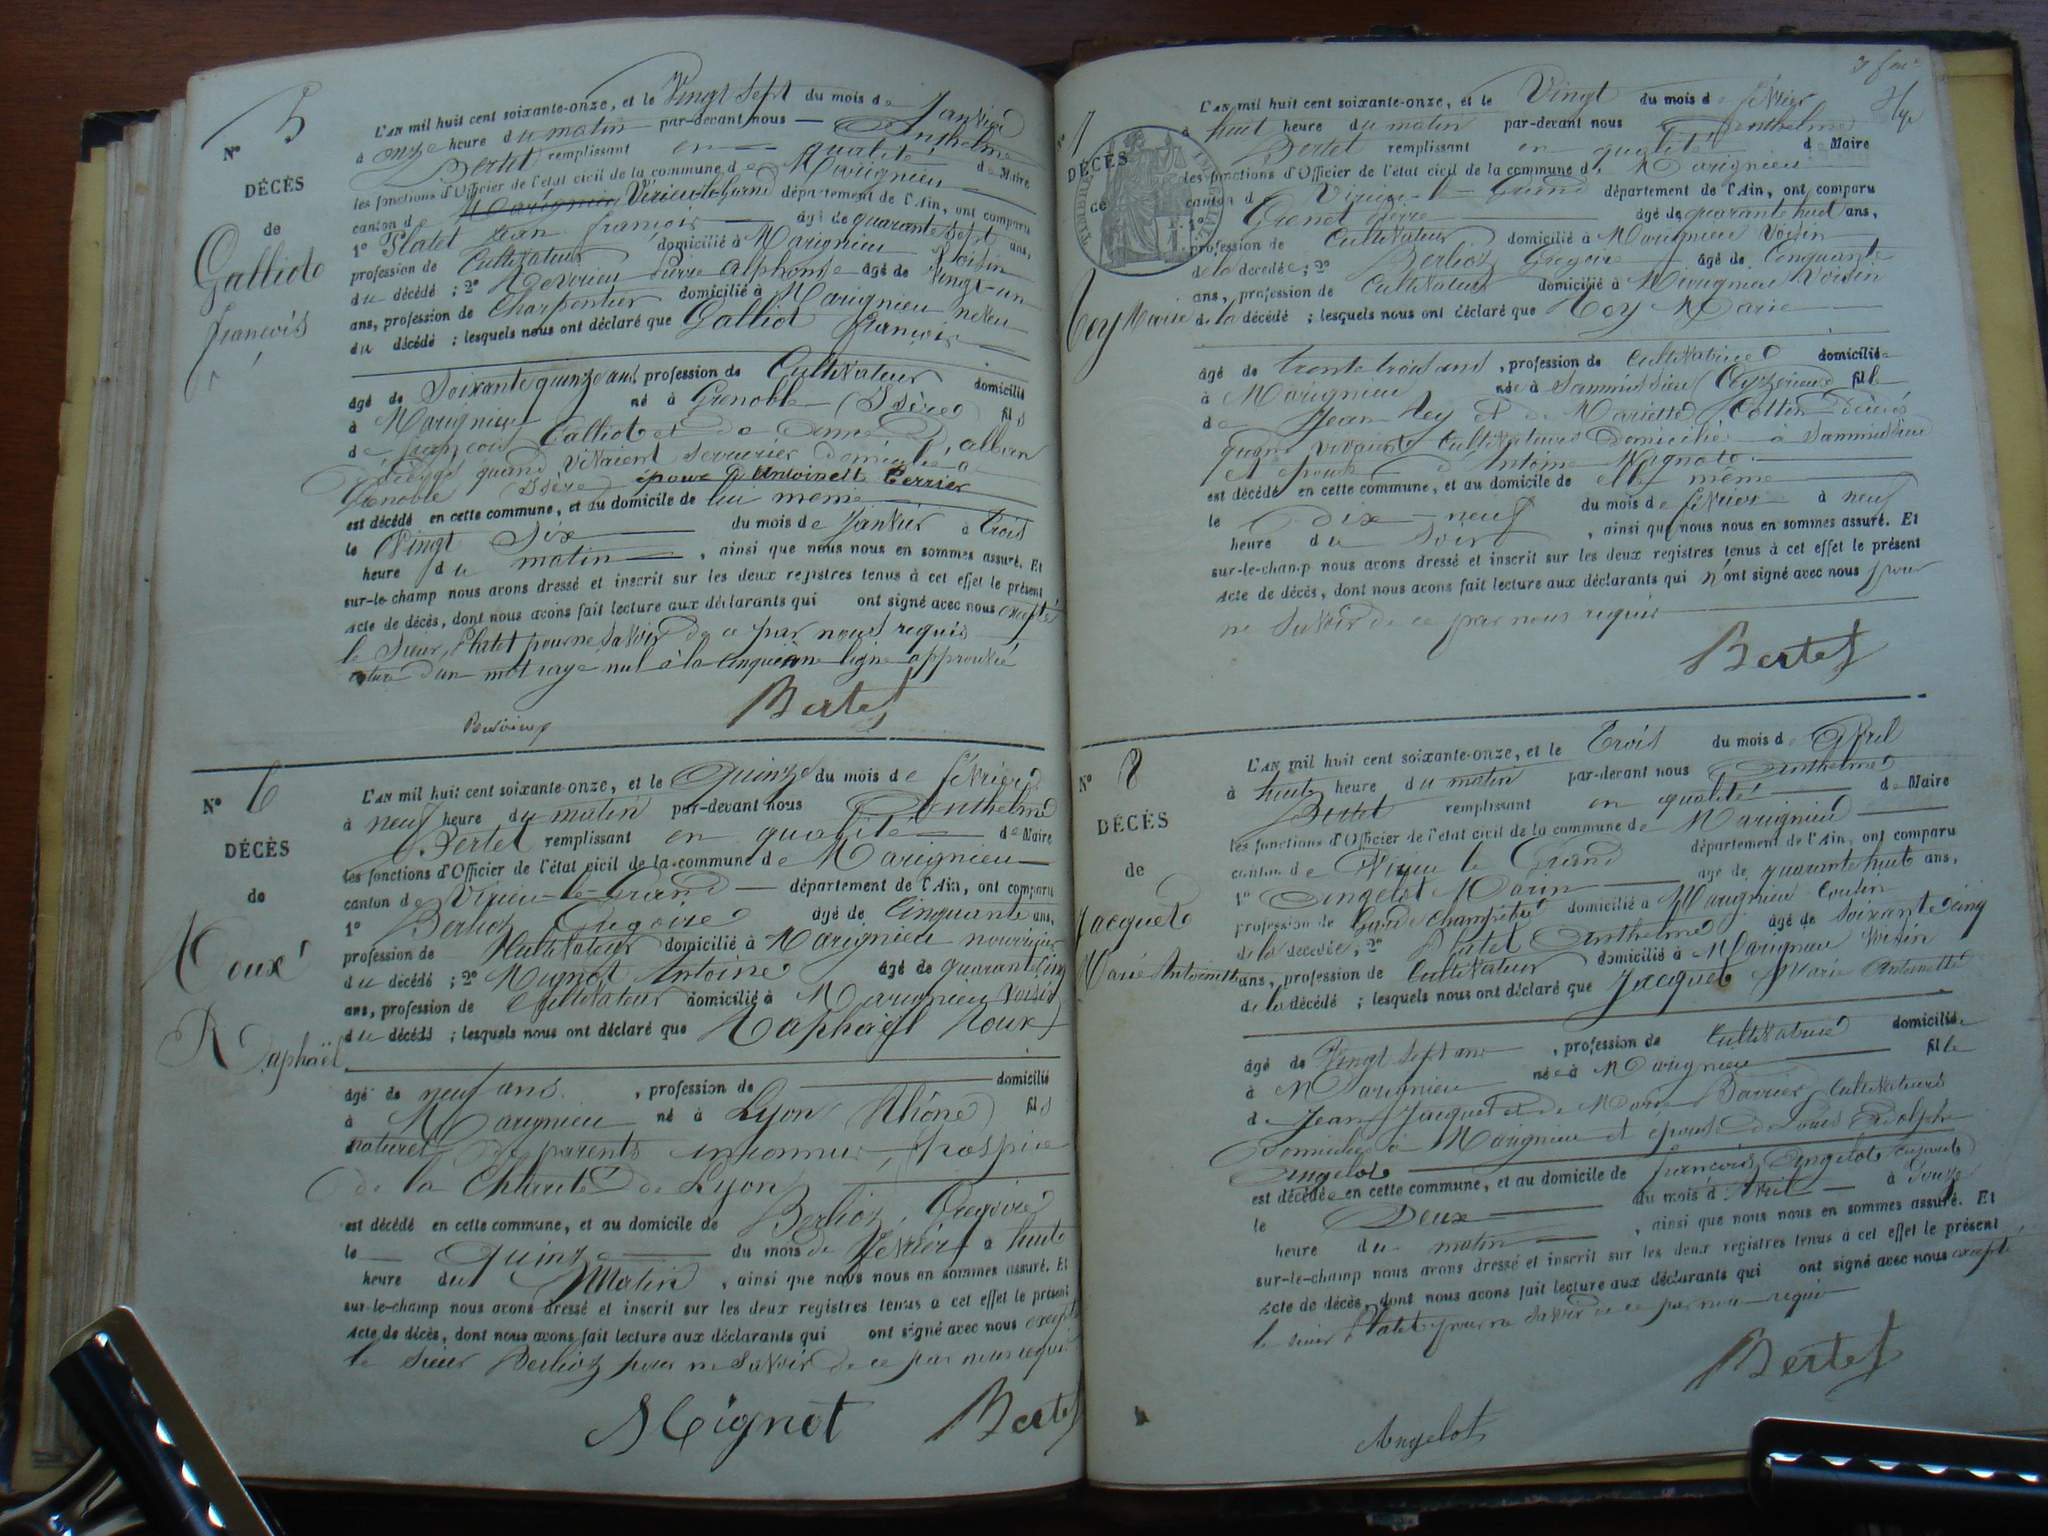 N° 5
DÉCÈS
de
Galliot
françois
L'AN mil huit cent soixante-onze, et le Vingt Sept du mois de Janvier
à onze heure du matin par-devant nous Anthelme
Bertet remplissant en qualité de Maire
les fonctions d'Officier de l'état civil de la commune de Marignieu
canton de Marignieu Virieu le Grand département de l'Ain, ont comparu
1° Platet Jean françois âgé de quarante sept ans,
profession de Cultivateur domicilié à Marignieu Voisin
du décédé ; 2° Pierre Alphonse âgé de Vingt-un
ans, profession de Charpentier domicilié à Marignieu neveu
du décédé ; lesquels nous ont déclaré que Galliot françois
âgé de Soixante quinze ans profession de Cultivateur domicilié
à Marignieu né à Grenoble (Isère) fils
de françois Galliot et de
décédés quand vivaient serrurier domiciliés à
Grenoble (Isère) époux d'Antoinette Perrier
est décédé en cette commune, et au domicile de lui même
le Vingt Six du mois de Janvier à trois
heure du matin , ainsi que nous nous en sommes assuré. Et
sur-le-champ nous avons dressé et inscrit sur les deux registres tenus à cet effet le présent
Acte de décès, dont nous avons fait lecture aux déclarants qui ont signé avec nous excepté
le Sieur Platet pour ne savoir de ce par nous requis
rature d'un mot rayé nul à la cinquième ligne approuvée
Bertet
N° 6
DÉCÈS
de
Roux
Raphaël
L'AN mil huit cent soixante-onze, et le Quinze du mois de février
à neuf heure du matin par-devant nous Anthelme
Bertet remplissant en qualité de Maire
les fonctions d'Officier de l'état civil de la commune de Marignieu
canton de Virieu-le-Grand département de l'Ain, ont comparu
1° Berlioz Grégoire âgé de Cinquante ans,
profession de Cultivateur domicilié à Marignieu nourricier
du décédé ; 2° Mignot Antoine âgé de quarante cinq
ans, profession de Cultivateur domicilié à Marignieu Voisin
du décédé ; lesquels nous ont déclaré que Raphaël Roux
âgé de neuf ans , profession de domicilié
à Marignieu né à Lyon (Rhône) fils
naturel de parents inconnus, hospice
de la Charité de Lyon
est décédé en cette commune, et au domicile de Berlioz Gregoire
le Quinze du mois de février à huit
heure du Matin , ainsi que nous nous en sommes assuré. Et
sur-le-champ nous avons dressé et inscrit sur les deux registres tenus à cet effet le présent
Acte de décès, dont nous avons fait lecture aux déclarants qui ont signé avec nous excepté
le Sieur Berlioz pour ne savoir de ce par nous requis
Mignot Bertet
N° 7
DÉCÈS
de
Rey Marie
L'AN mil huit cent soixante-onze, et le Vingt du mois de février
à huit heure du matin par-devant nous Anthelme
Bertet remplissant en qualité de Maire
les fonctions d'Officier de l'état civil de la commune de Marignieu
canton de Virieu-le-Grand département de l'Ain, ont comparu
1° Pierre âgé de quarante huit ans,
profession de Cultivateur domicilié à Marignieu Voisin
de la décédée ; 2° Berlioz Gregoire âgé de Cinquante
ans, profession de Cultivateur domicilié à Marignieu Voisin
de la décédé ; lesquels nous ont déclaré que Rey Marie
âgé de trente trois ans , profession de Cultivatrice domiciliée
à Marignieu née à fille
de Jean Rey et de Mariette Cottin décédés
quand vivaient Cultivateurs domiciliés à
et épouse d'Antoine Mignot
est décédé en cette commune, et au domicile de elle même
le dix-neuf du mois de février à neuf
heure du soir , ainsi que nous nous en sommes assuré. Et
sur-le-champ nous avons dressé et inscrit sur les deux registres tenus à cet effet le présent
Acte de décès, dont nous avons fait lecture aux déclarants qui n'ont signé avec nous pour
ne savoir de ce par nous requis
Bertet
N° 8
DÉCÈS
de
Jacquet
Marie Antoinette
L'AN mil huit cent soixante-onze, et le Trois du mois d'Avril
à huit heure du matin par-devant nous Anthelme
Bertet remplissant en qualité de Maire
les fonctions d'Officier de l'état civil de la commune de Marignieu
canton de Virieu le Grand département de l'Ain, ont comparu
1° Angelot Marin âgé de quarante huit ans,
profession de Garde Champêtre domicilié à Marignieu Cousin
de la décédée ; 2° Platet Anthelme âgé de soixante cinq
ans, profession de Cultivateur domicilié à Marignieu Voisin
de la décédé ; lesquels nous ont déclaré que Jacquet Marie Antoinette
âgé de Vingt Sept ans , profession de Cultivatrice domiciliée
à Marignieu née à Marignieu fille
de Jean Jacquet et de Marie Cultivateurs
domiciliés à Marignieu et épouse de Louis Adolphe
Angelot
est décédée en cette commune, et au domicile de françois Angelot
le Deux du mois d'Avril à
heure du matin , ainsi que nous nous en sommes assuré. Et
sur-le-champ nous avons dressé et inscrit sur les deux registres tenus à cet effet le présent
Acte de décès, dont nous avons fait lecture aux déclarants qui ont signé avec nous excepté
le sieur Platet pour ne savoir de ce par nous requis
Bertet
Angelot